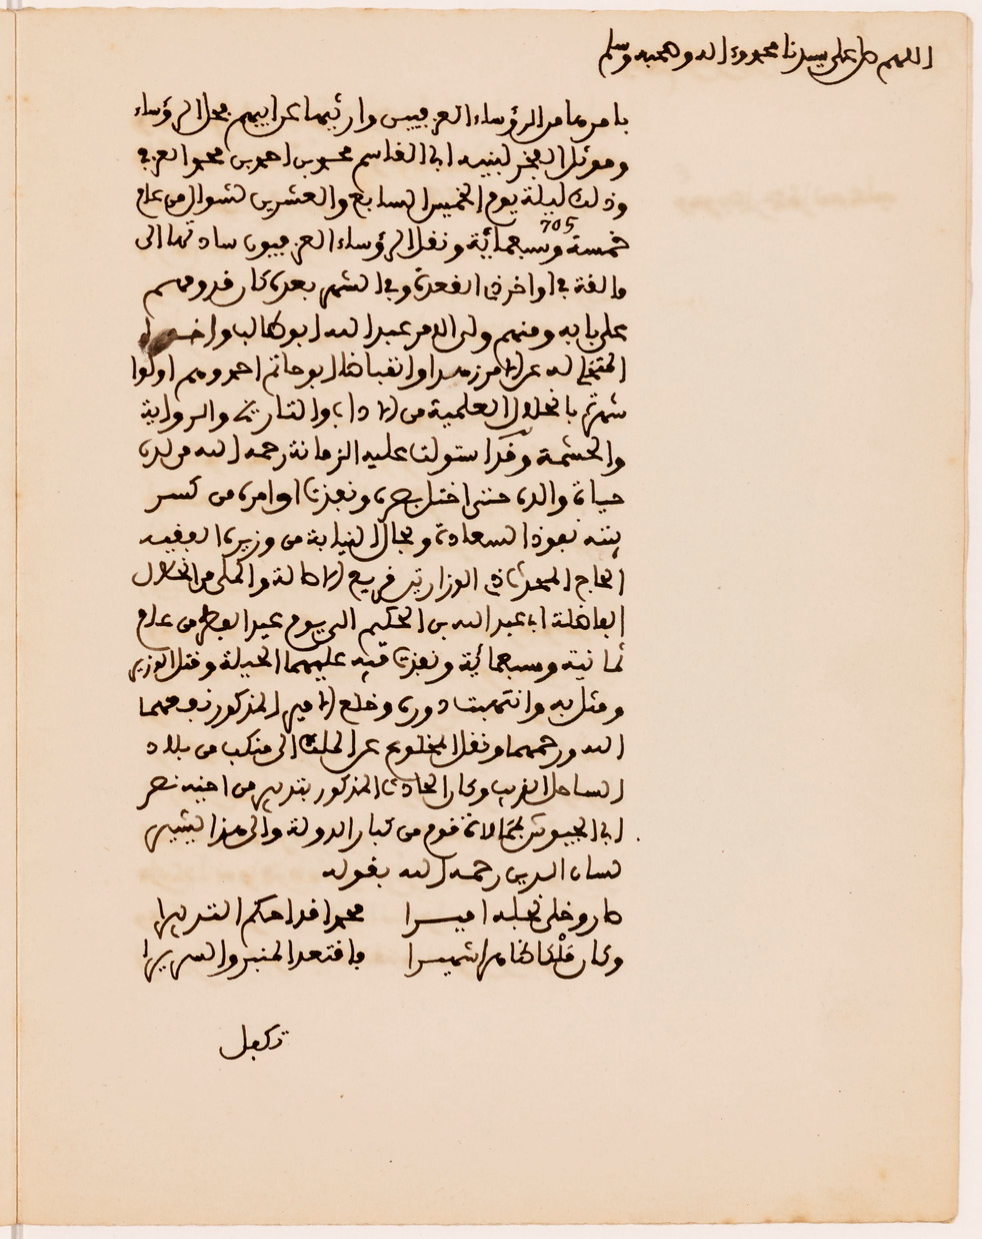 اللهم صل على سيدنا محمد وءاله وصحبه وسلم
بامرهما من الرؤساء العزفيين وارثيها عن ابيهم محل الرؤساء
وموئل الفخر لبنيه ابى القاسم محمد بن احمد بن محمد العزفى
وذلك ليلة يوم الخميس السابع والعشرين لشوال من عام
خمسة وسبعمائة 705 ونقل الرؤساء العزفيون ساداتها الى
مالقة فى اواخر ذى القعدة وفى الشهر بعده كان قدومهم
على بابه ومنهم ولى الامر عبد الله ابو طالب واخوه
المتخلى له عن الامر زهدا وانقباضا ابو حاتم احمد وهم اولوا
شهرة بالخلال العلمية من الاداب والتاريخ والرواية
والحشمة وقد استولت عليه الزمانة رحمه الله من لدن
حياة والده حتى اختل بصره ونفذت اوامره من كسر
بيته نفوذ السعادة ومجال النيابة من وزيره الفقيه
الحاج المحدث ذى الوزارتين فريع الاصالة والملى من الخلال
الفاضلة ابا عبد الله بن الحكيم الى يوم عيد الفطر من عام
ثمانية وسبعمائة ونفذت فيه عليهما الحيلة وقتل الوزير
ومثل به وانتهبت دوره وخلع الامير المذكور نفعهما
الله ورحمهما ونقل المخلوع عن الملك الى منكب من بلاد
الساحل الغربى وكان الحادث المذكور بتدبير من اخيه نصر
ابى الجيوش بممالاة قوم من كبار الدولة والى هذا يشير
لسان الدين رحمه الله بقوله
صار وخلى نجله اميرا محمدا قد احكم التدبيرا
وكان ملكا ظاهرا شهيرا فاقتعد المنبر والسريرا
تركعل